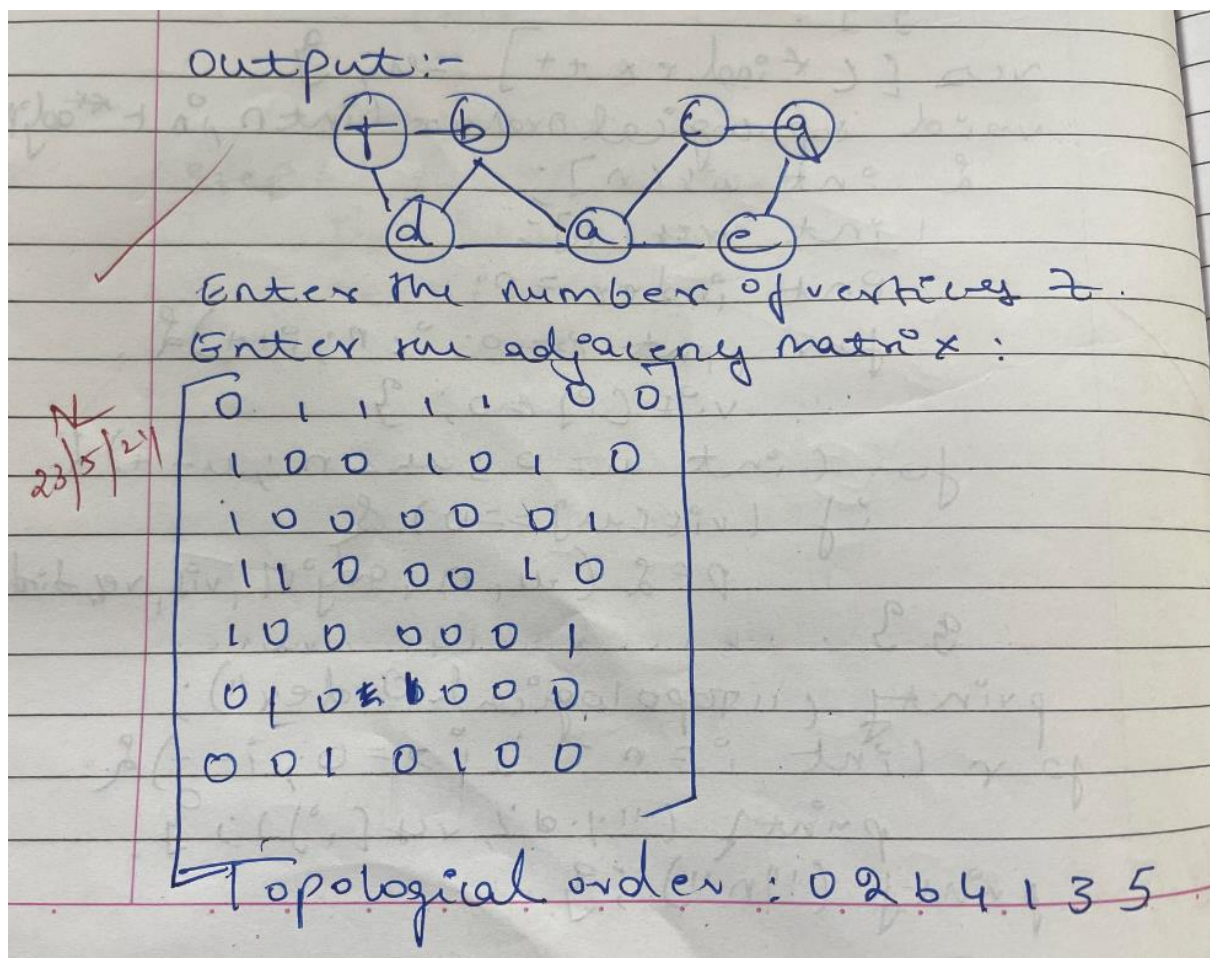 output:-
f b c g
d a e
Enter the number of vertices 7.
Enter the adjaceny matrix :
0 1 1 1 1 0 0
1 0 0 1 0 1 0
1 0 0 0 0 0 1
1 1 0 0 0 1 0
1 0 0 0 0 0 1
0 1 0 1 0 0 0
0 0 1 0 1 0 0
23/5/24
Topological order : 0 2 6 4 1 3 5